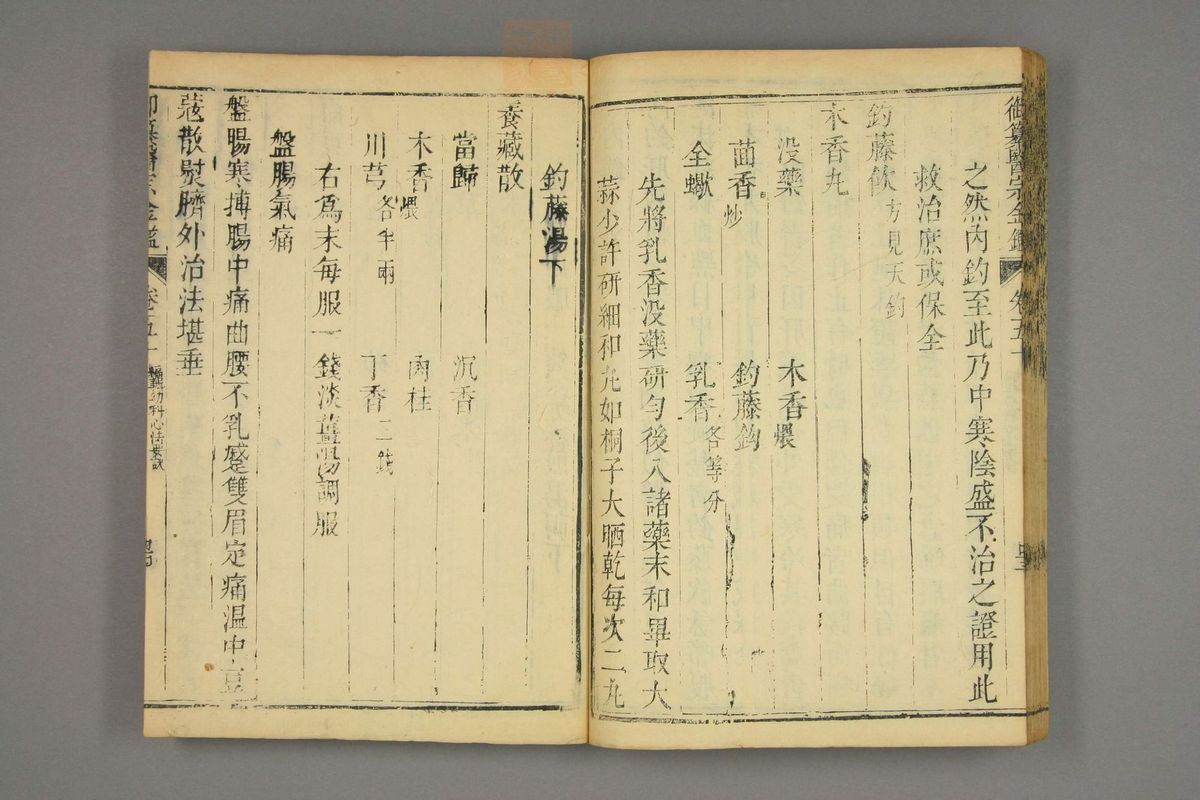 御纂醫宗金鑑 卷五十
之然內釣至此乃中寒陰盛不治之證用此
救治庶或保全
釣藤飲 方見天釣
木香丸
沒藥 木香煨
茴香炒 釣藤鈎
全蠍 乳香各等分
先將乳香沒藥研勻後入諸藥末和畢取大
蒜少許研細和丸如桐子大晒乾每次二丸
釣藤湯下
養藏散
當歸 沉香
木香煨 肉桂
川芎各半兩 丁香二錢
右爲末每服一錢淡薑湯調服
盤腸氣痛
盤腸寒搏腸中痛曲腰不乳蹙雙眉定痛溫中豆
蔻散熨臍外治法堪垂
御纂醫宗金鑑 卷五十 編輯幼科心法要訣